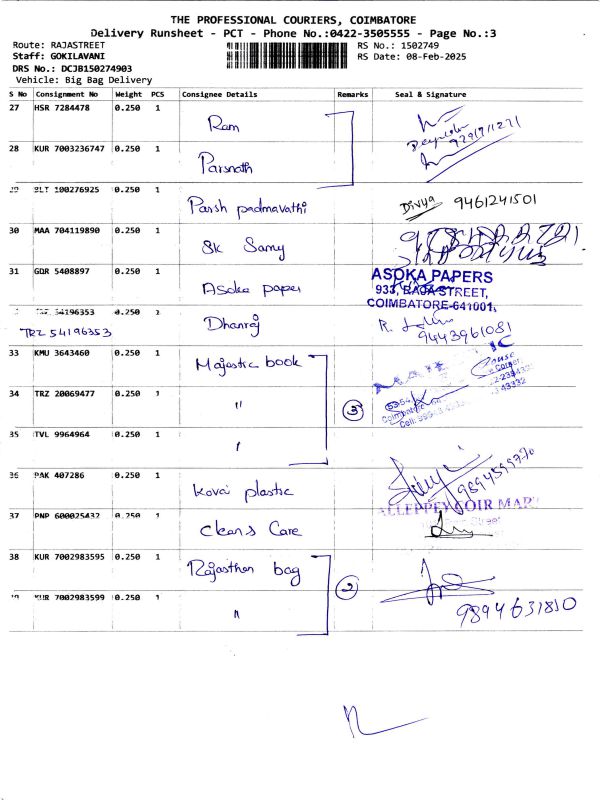 THE PROFESSIONAL COURIERS, COIMBATORE
Delivery Runsheet - PCT - Phone No.:0422-3505555 - Page No.:3
Route: RAJASTREET
RS No.: 1502749
Staff: GOKILAVANI
RS Date: 08-Feb-2025
DRS No.: DCJB150274903
Vehicle: Big Bag Delivery
S No Consignment No Weight PCS Consignee Details Remarks Seal & Signature
27 HSR 7284478 0.250 1 Ram
28 KUR 7003236747 0.250 1 Parsnath
29 BLT 100276925 0.250 1 Parsh padmavathi Divya 9461241501
30 MAA 704119890 0.250 1 SK Samy
31 GDR 5408897 0.250 1 Asoka paper ASOKA PAPERS
933, RAJA STREET,
COIMBATORE-641001,
TRZ 54196353 0.250 1 Dhanraj 9443961081
TRZ 54196353
33 KMU 3643460 0.250 1 Majestic book
34 TRZ 20069477 0.250 1 " 3
35 TVL 9964964 0.250 1 "
36 PAK 407286 0.250 1 Kovai plastic
37 PNP 600025432 0.250 1 Clean & Care ALLEPPEY COIR MART
Street
38 KUR 7002983595 0.250 1 Rajasthan bag 2
39 KUR 7002983599 0.250 1 " 9894631850